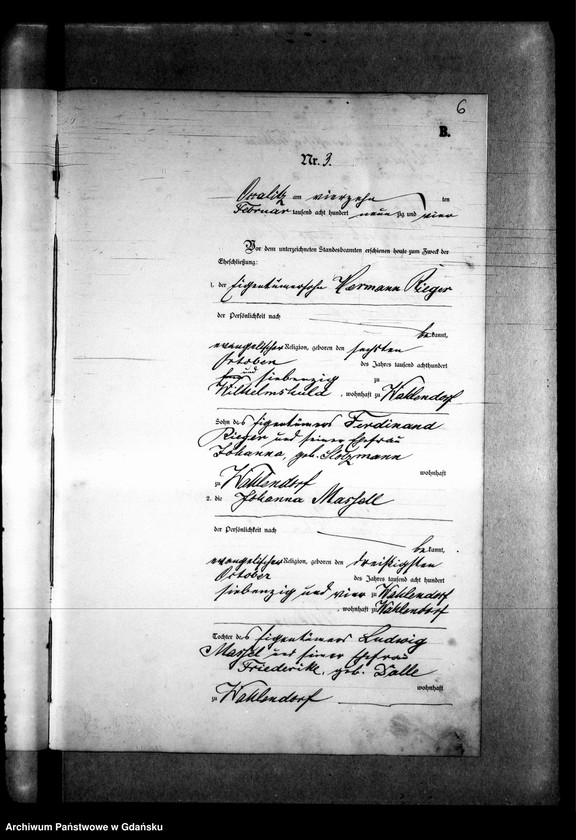 6
B.
Nr. 3.
am vierzehn ten
Februar tausend acht hundert neunzig und vier
Vor dem unterzeichneten Standesbeamten erschienen heute zum Zweck der
Eheschließung:
1. der Eigentümersohn Hermann Rieger
der Persönlichkeit nach
bekannt,
evangelischer Religion, geboren den sechsten
October des Jahres tausend achthundert
und siebenzig zu
Wilhelmshuld, wohnhaft zu Wahlendorf
Sohn des Eigentümers Ferdinand
Rieger und seiner Ehefrau
Johanna, geb. Stolzmann
wohnhaft
zu Wahlendorf
2. die Johanna Massell
der Persönlichkeit nach
bekannt,
evangelischer Religion, geboren den dreißigsten
October des Jahres tausend acht hundert
siebenzig und vier zu Wahlendorf
, wohnhaft zu Wahlendorf
Tochter des Eigentümers Ludwig
Massel und seiner Ehefrau
Friederike, geb. Dalle
wohnhaft
zu Wahlendorf
Archiwum Państwowe w Gdańsku